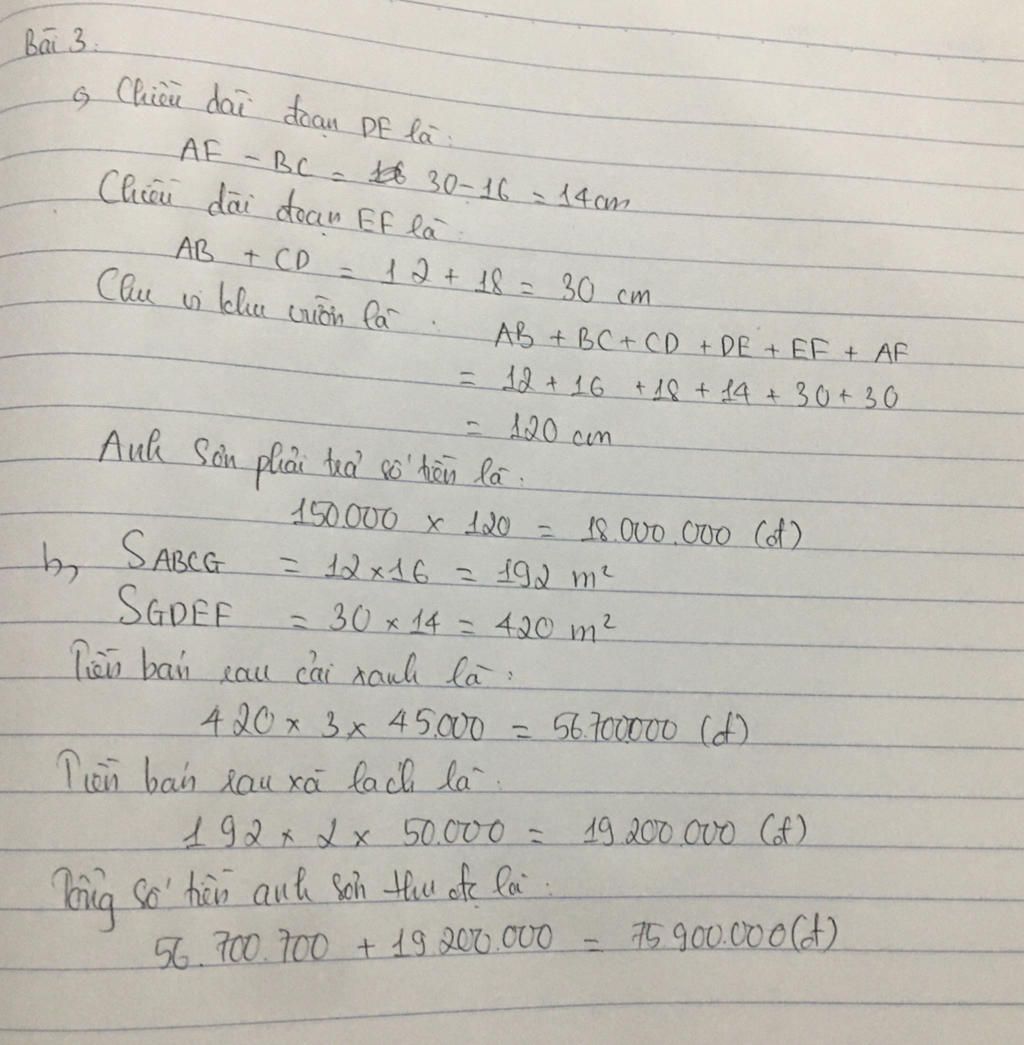 Bài 3:
a, Chiều dài đoạn DE là:
AF - BC = 30 - 16 = 14 cm
Chiều dài đoạn EF là:
AB + CD = 12 + 18 = 30 cm
Chu vi khu vườn là: AB + BC + CD + DE + EF + AF
= 12 + 16 + 18 + 14 + 30 + 30
= 120 cm
Anh Sơn phải trả số tiền là:
150.000 x 120 = 18.000.000 (đ)
b, SABCG = 12 x 16 = 192 m²
SGDEF = 30 x 14 = 420 m²
Tiền bán rau cải xanh là:
420 x 3 x 45.000 = 56.700.000 (đ)
Tiền bán rau xà lách là:
192 x 2 x 50.000 = 19.200.000 (đ)
Tổng số tiền anh Sơn thu đc là:
56.700.700 + 19.200.000 = 75.900.000 (đ)